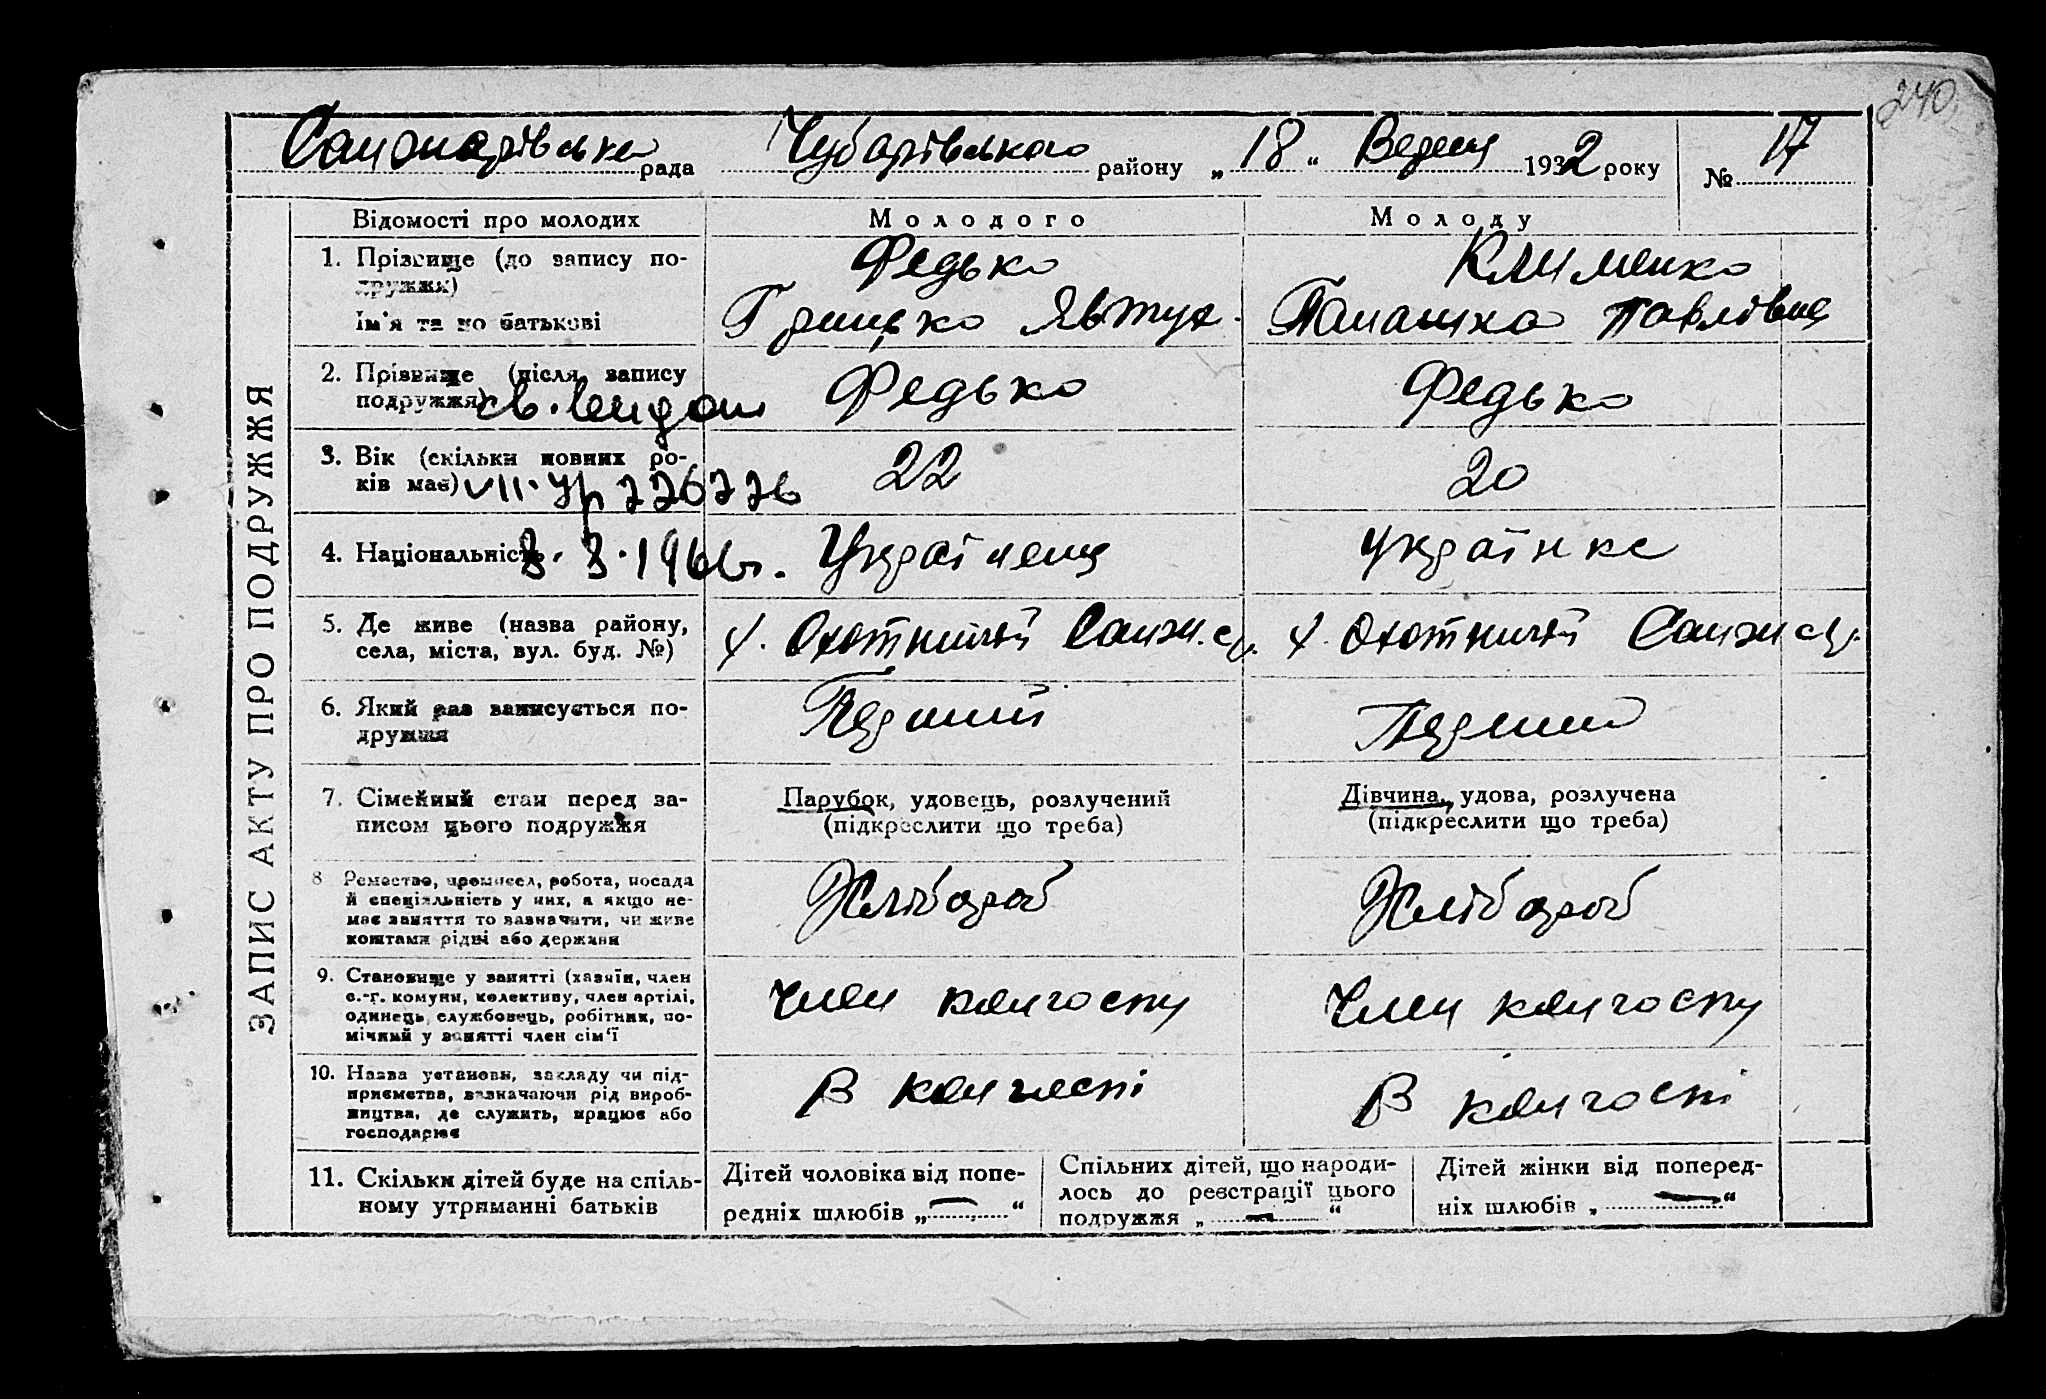 240
Санжарівська рада Чубарівського району „ 18 “ Вересня 1932 року № 17
ЗАПИС АКТУ ПРО ПОДРУЖЖЯ
Відомості про молодих
Молодого
Молоду
1. Прізвище (до запису по-
дружжя)
Ім'я та по батькові
Федько
Грицько Явтух.
Клименко
Палашка Павлівна
2. Прізвище (після запису
подружжя)
Федько
Федько
3. Вік (скільки повних ро-
ків має)
22
20
4. Національність
8. 3. 1966г.
Українець
українка
5. Де живе (назва району,
села, міста, вул. буд. №)
х. Охотничий Санж. с/р.
х. Охотничий Санж с/р.
6. Який раз записується по-
дружжя
Перший
Перший
7. Сімейний стан перед за-
писом цього подружжя
Парубок, удовець, розлучений
(підкреслити що треба)
Дівчина, удова, розлучена
(підкреслити що треба)
8 Ремество, промисел, робота, посада
й спеціяльність у них, а якщо не-
має заняття то зазначити, чи живе
коштами рідні або держави
Хлібороб
Хлібороб
9. Становище у занятті (хазяїн, член
с.-г. комуни, колективу, член артілі,
одинець, службовець, робітник, по-
мічний у занятті член сім'ї
Член колгоспу
Член колгоспу
10. Назва установи, закладу чи під-
приємства, зазначаючи рід вироб-
ництва, де служить, працює або
господарює
В колгоспі
В колгоспі
11. Скільки дітей буде на спіль-
ному утриманні батьків
Дітей чоловіка від попе-
редніх шлюбів „ — “
Спільних дітей, що народи-
лось до реєстрації цього
подружжя „ — “
Дітей жінки від поперед-
ніх шлюбів „ — “